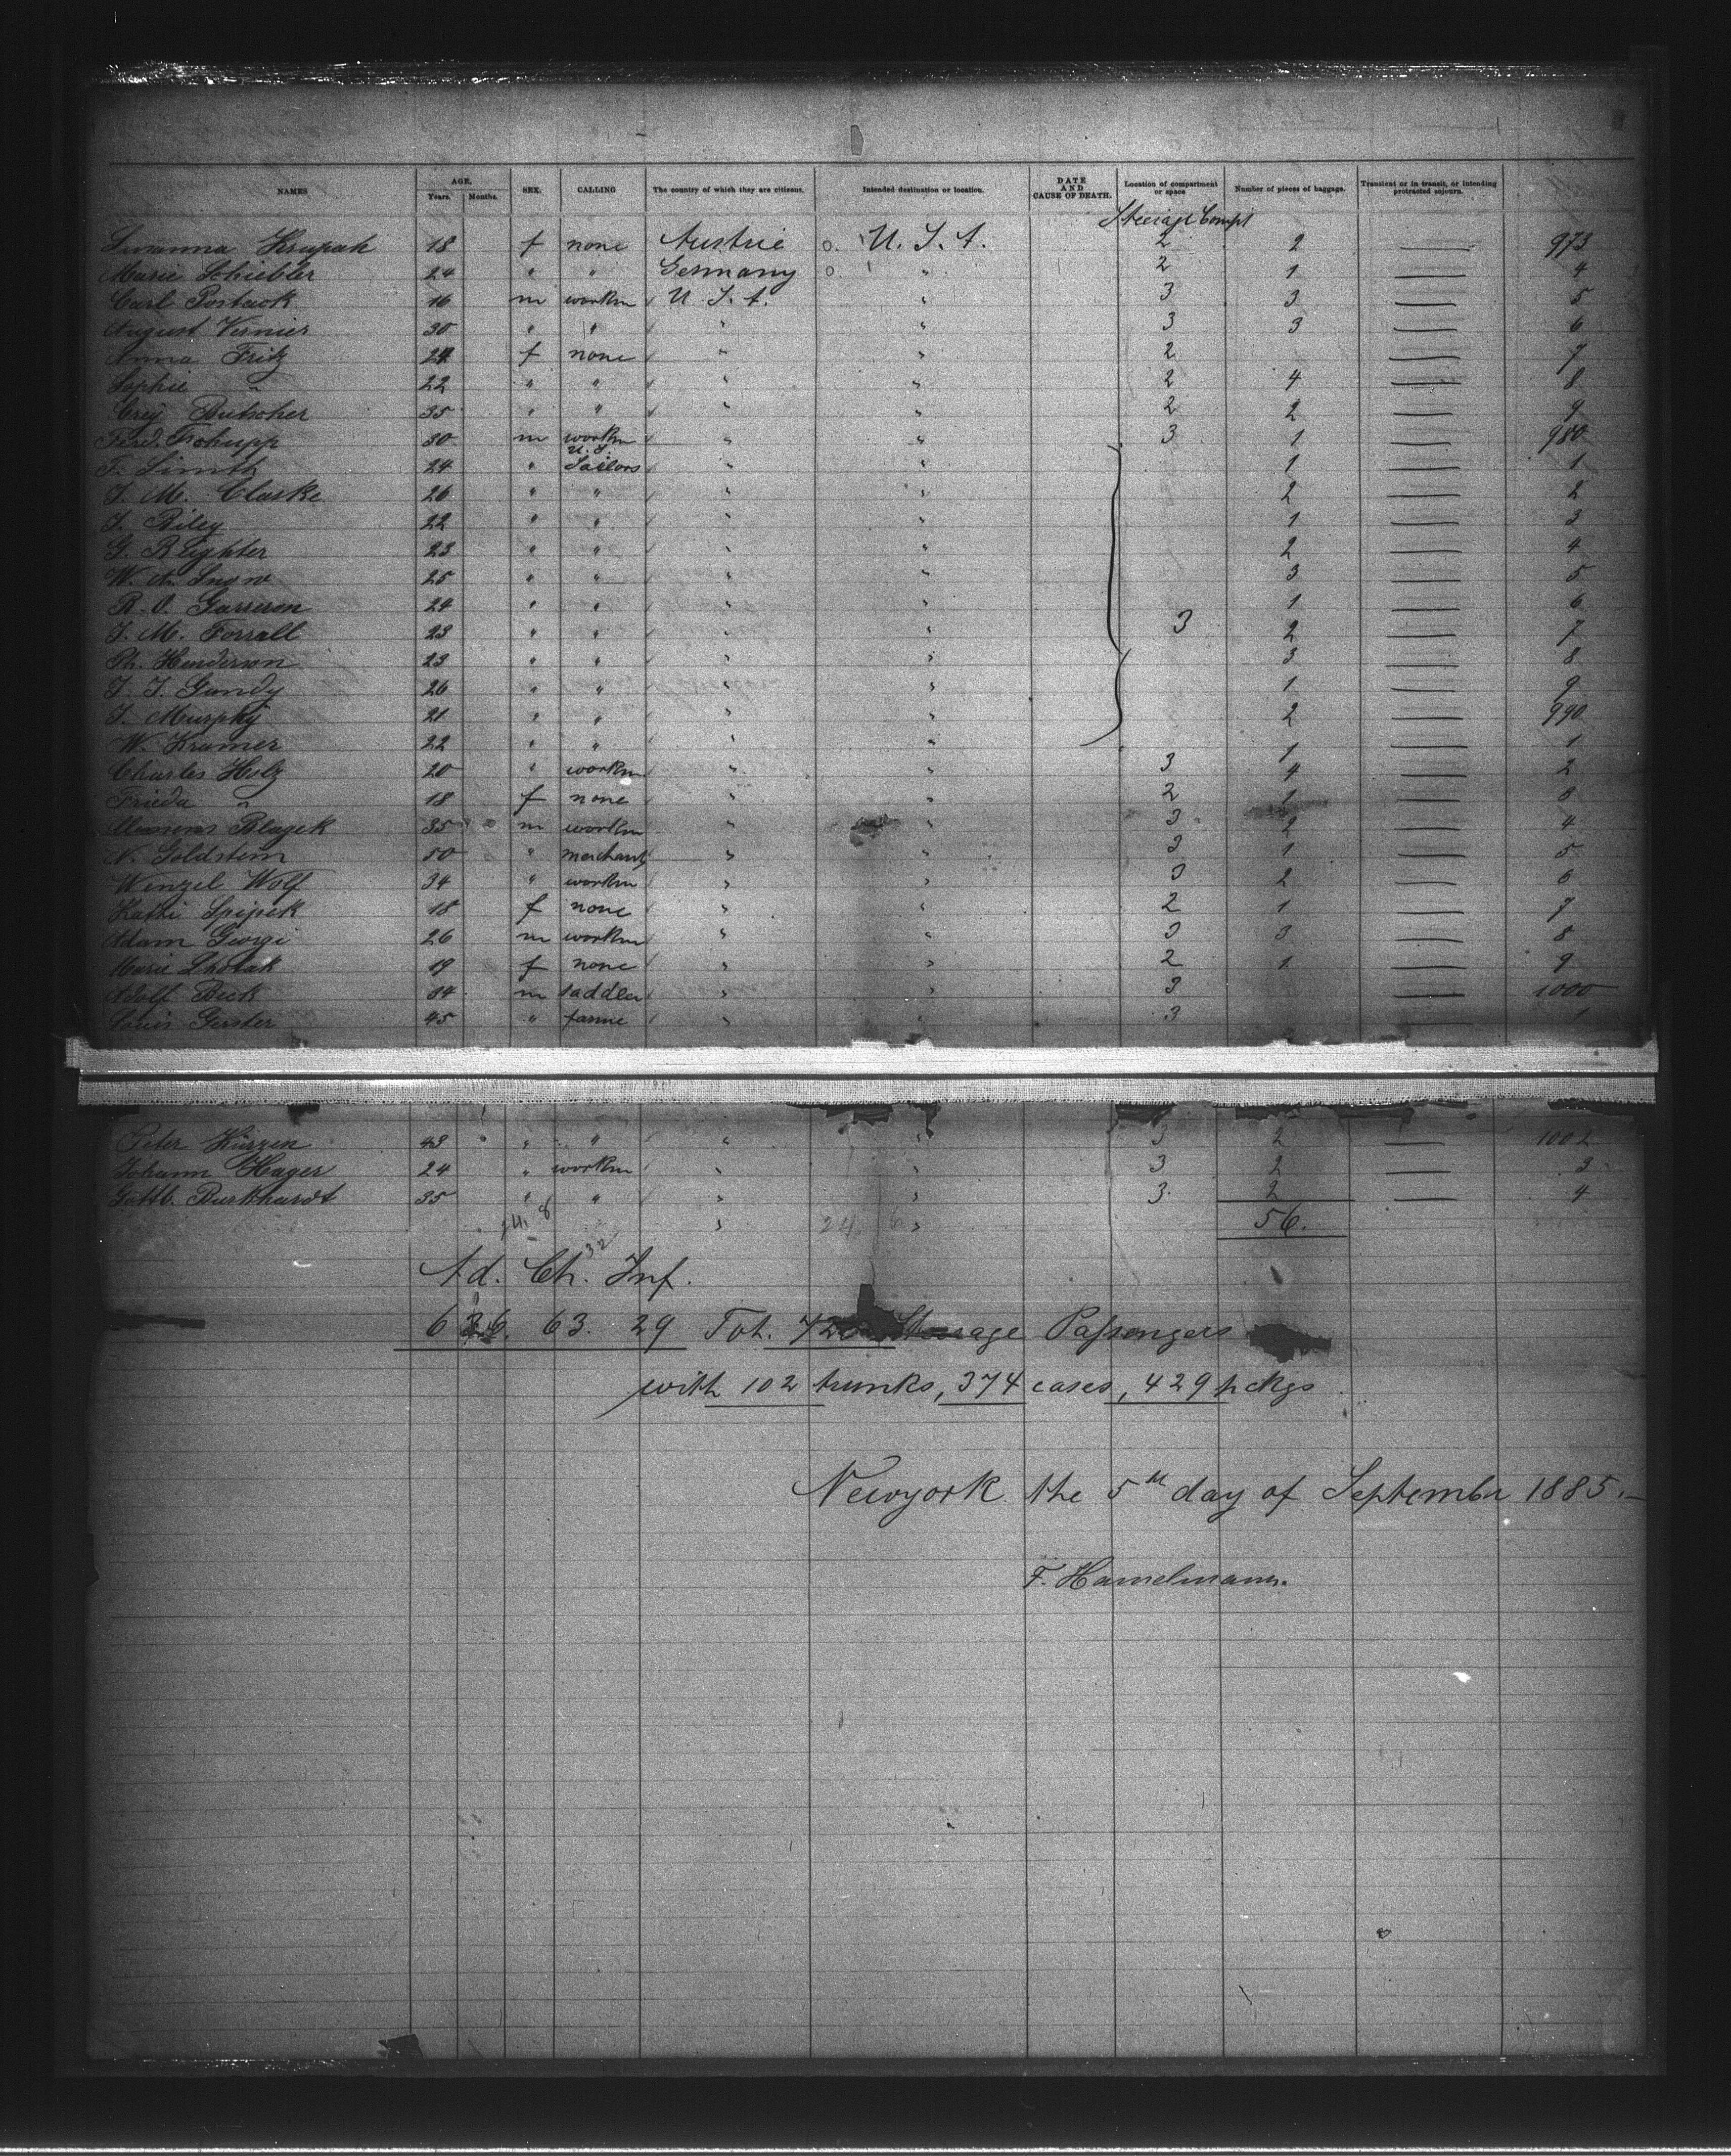 NAMES AGE. Years. Months. SEX. CALLING The country of which they are citizens. Intended destination or location. DATE AND CAUSE OF DEATH. Location of compartment or space Number of pieces of baggage. Transient or in transit, or intending protracted sojourn.
Steerage Compt
Susanna Krupak 18 f none Austria o. U. S. A. 2 2 — 973
Marie Schiebler 24 " " Germany o " 2 1 — 4
Carl Postack 16 m workm U. S. A. " 3 3 — 5
August Vernier 30 " " " " 3 3 — 6
Anna Fritz 24 f none " " 2 — 7
Sophie " 22 " " " " 2 4 — 8
Butscher 35 " " " " 2 2 — 9
Ferd. Tschupp 30 m workm " " 3 1 — 980
U. S.
F. Smith 24 " Sailors " " 1 — 1
J. M. Clarke 26 " " " " 2 — 2
J. Biley 22 " " " " 1 — 3
G. Blighter 23 " " " " 2 — 4
W. A. Snow 25 " " " " 3 — 5
R. O. Garreson 24 " " " " 1 — 6
J. M. Forrall 23 " " " " 3 2 — 7
Ph. Henderson 23 " " " " 3 — 8
J. J. Gundy 26 " " " " 1 — 9
J. Murphy 21 " " " " 2 — 990
W. Kramer 22 " " " " 1 — 1
Charles Holz 20 " workm " " 3 4 — 2
Frieda " 18 f none " " 2 1 — 3
Blazek 35 m workm " " 3 2 — 4
N. Goldstein 50 " merchant " " 3 1 — 5
Wenzel Wolf 34 " workm " " 3 2 — 6
Kathi Spipek 18 f none " " 2 1 — 7
Adam Georgi 26 m workm " " 3 3 — 8
Marie Lhotak 19 f none " " 2 1 — 9
Adolf Beck 34 m saddler " " 3 — 1000
Louis Gerster 45 " farme " " 3 — 1
Peter Kürzen 43 " " " " 3 2 — 1002
Johann Hager 24 " workm " " 3 2 — 3
Gottl. Burkhardt 35 " " " " 3 2 — 4
24. 8 " 24 6 " 56.
32
Ad. Ch. Inf.
63. 29 Tot. Steerage Passengers
with 102 trunks, 374 cases, 429 pckgs
Newyork the 5th day of September 1885.—
F. Hamelmann.